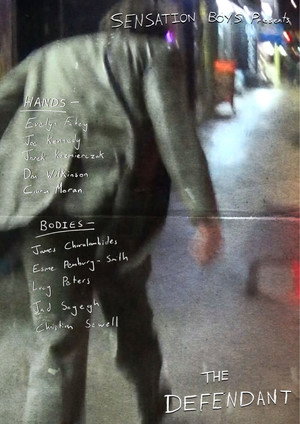 SENSATION BOYS Presents
HANDS —
Joe Kennedy
Jarek Kazmierczak
Wilkinson
Moran
BODIES —
James Charalambides
Esme Pemburg-Smith
Lucy Peters
Jad Sayegh
Christian Sewell
THE
DEFENDANT